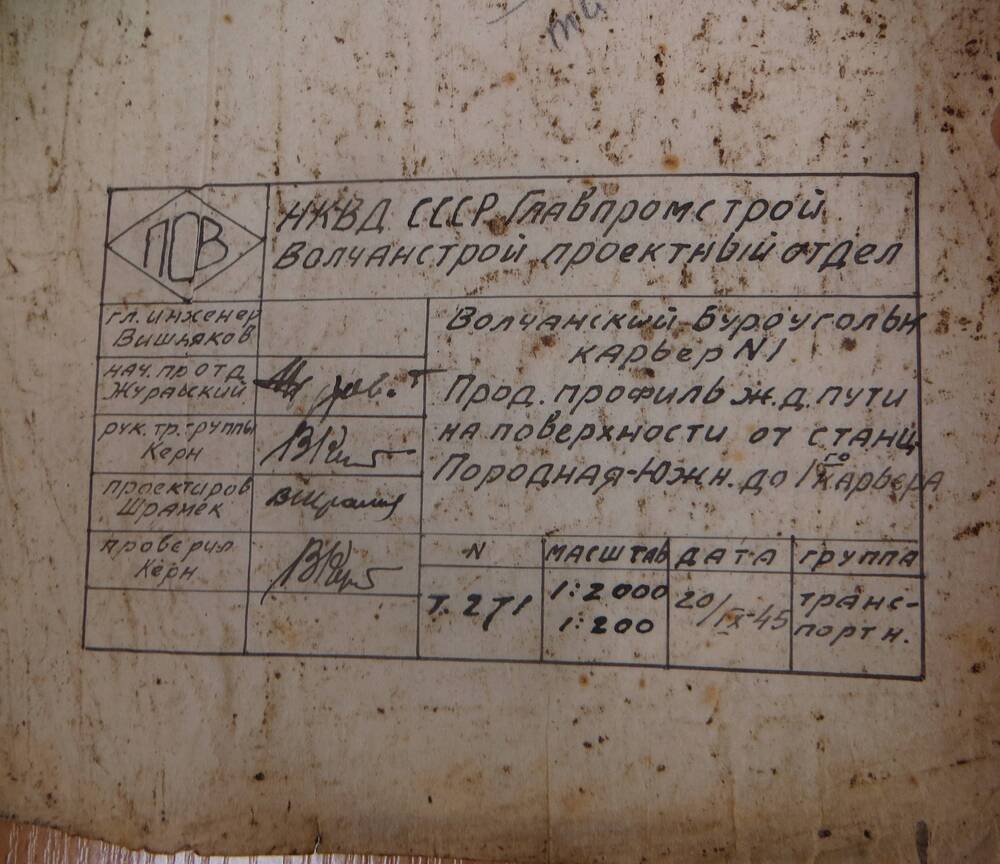 ПОВ
НКВД СССР Главпромстрой
Волчанстрой проектный отдел
гл. инженер
Вишняков
нач. пр отд
Журавский
рук. тр. группы
Керн
проектиров
Шрамек
проверил
Керн
Волчанский-Буроугольн
карьер N1
Прод. профиль ж.д. пути
на поверхности от станц
Породная-Южн. до 1го карьера
N
масштаб
дата
группа
Т. 271
1:2000
1:200
20/IX-45
транс-
портн.